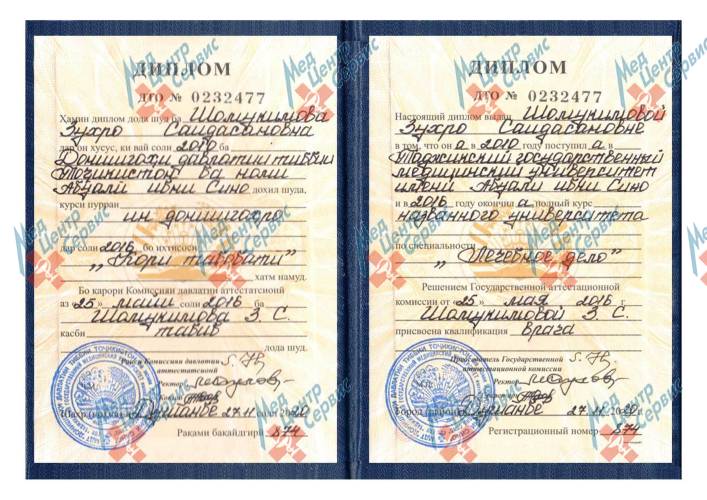 ДИПЛОМ
ДТО № 0232477
Ҳамин диплом дода шуд ба Шомукимова
Зухро Саидасановна
дар он хусус, ки вай соли 2010 ба
Донишгоҳи давлатии тиббии
Тоҷикистон ба номи
Абӯалӣ ибни Сино дохил шуда,
курси пурраи
ин донишгоҳро
дар соли 2016 бо ихтисоси
„Кори табобатӣ”
хатм намуд.
Бо қарори Комиссияи давлатии аттестатсионӣ
аз „25” маи соли 2016 ба
Шомукимова З. С.
касби табиб
дода шуд.
Раиси Комиссияи давлатии
аттестатсионӣ
Ректор
Котиб
Душанбе 27.11 соли 2020
Рақами бақайдгирӣ 874
ДИПЛОМ
ДТО № 0232477
Настоящий диплом выдан Шомукимовой
Зухро Саидасановне
в том, что он а в 2010 году поступил а в
Таджикский государственный
медицинский университет
имени Абуали ибни Сино
и в 2016 году окончил а полный курс
названного университета
по специальности
„Лечебное дело”
Решением Государственной аттестационной
комиссии от „25” мая 2016 г
Шомукимовой З. С.
присвоена квалификация врача
Председатель Государственной
аттестационной комиссии
Ректор
Секретарь
Город Душанбе 27.11.2020 г
Регистрационный номер 874
Мед Центр Сервис